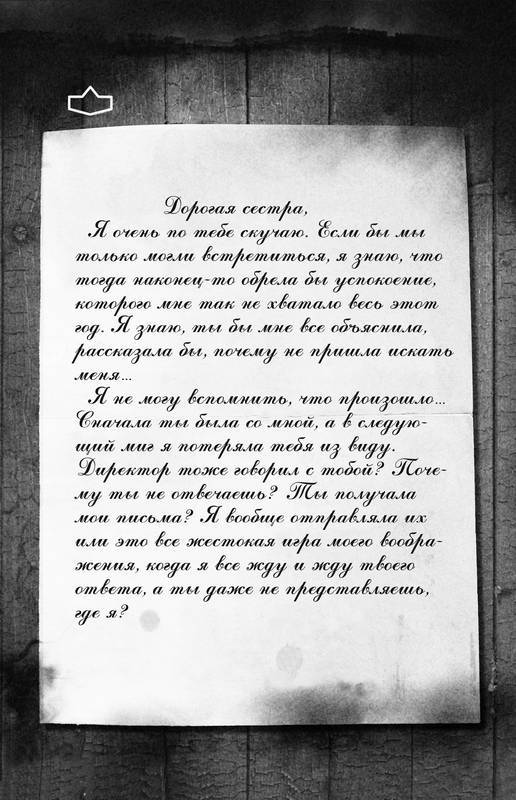 Дорогая сестра,
Я очень по тебе скучаю. Если бы мы
только могли встретиться, я знаю, что
тогда наконец-то обрела бы успокоение,
которого мне так не хватало весь этот
год. Я знаю, ты бы мне все объяснила,
рассказала бы, почему не пришла искать
меня...
Я не могу вспомнить, что произошло...
Сначала ты была со мной, а в следую-
щий миг я потеряла тебя из виду.
Директор тоже говорил с тобой? Поче-
му ты не отвечаешь? Ты получала
мои письма? Я вообще отправляла их
или это все жестокая игра моего вообра-
жения, когда я все жду и жду твоего
ответа, а ты даже не представляешь,
где я?